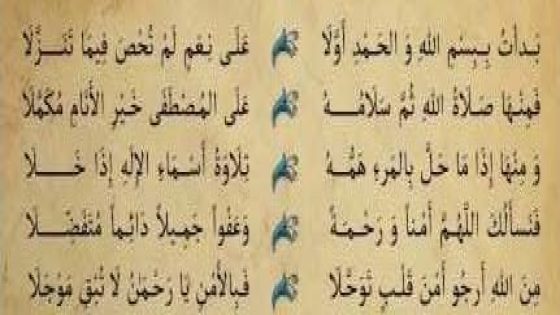 بَدَأتُ بِبِسْمِ اللهِ وَ الحَمْدِ أَوَّلَا عَلَى نِعَمٍ لَمْ تُحْصَ فِيمَا تَنَــزَّلَا
فَمِنْهَا صَلَاةُ اللهِ ثُمَّ سَلَامُــهُ عَلَى المُصْطَفَى خَيْرِ الأَنَامِ مُكَمَّلَا
وَ مِنْهَا إِذَا مَا حَلَّ بِالمَرءِ هَمُّــهُ تِلَاوَةُ أَسْمَـاءِ الإِلَهِ إِذَا خَــلَا
فَنَسأَلُكَ اللَّهُمَّ أَمْناً وَ رَحْمَـةً وَعَفْواً جَمِيلاً دَائِماً مُتَفَضِّـلَا
مِنَ اللهِ أَرجُو أَمْنَ قَلْبٍ تَوَحَّلَا فَبِالأَمْنِ يَا رَحْمَنُ لَا تُبْقِ مَوْجَلَا